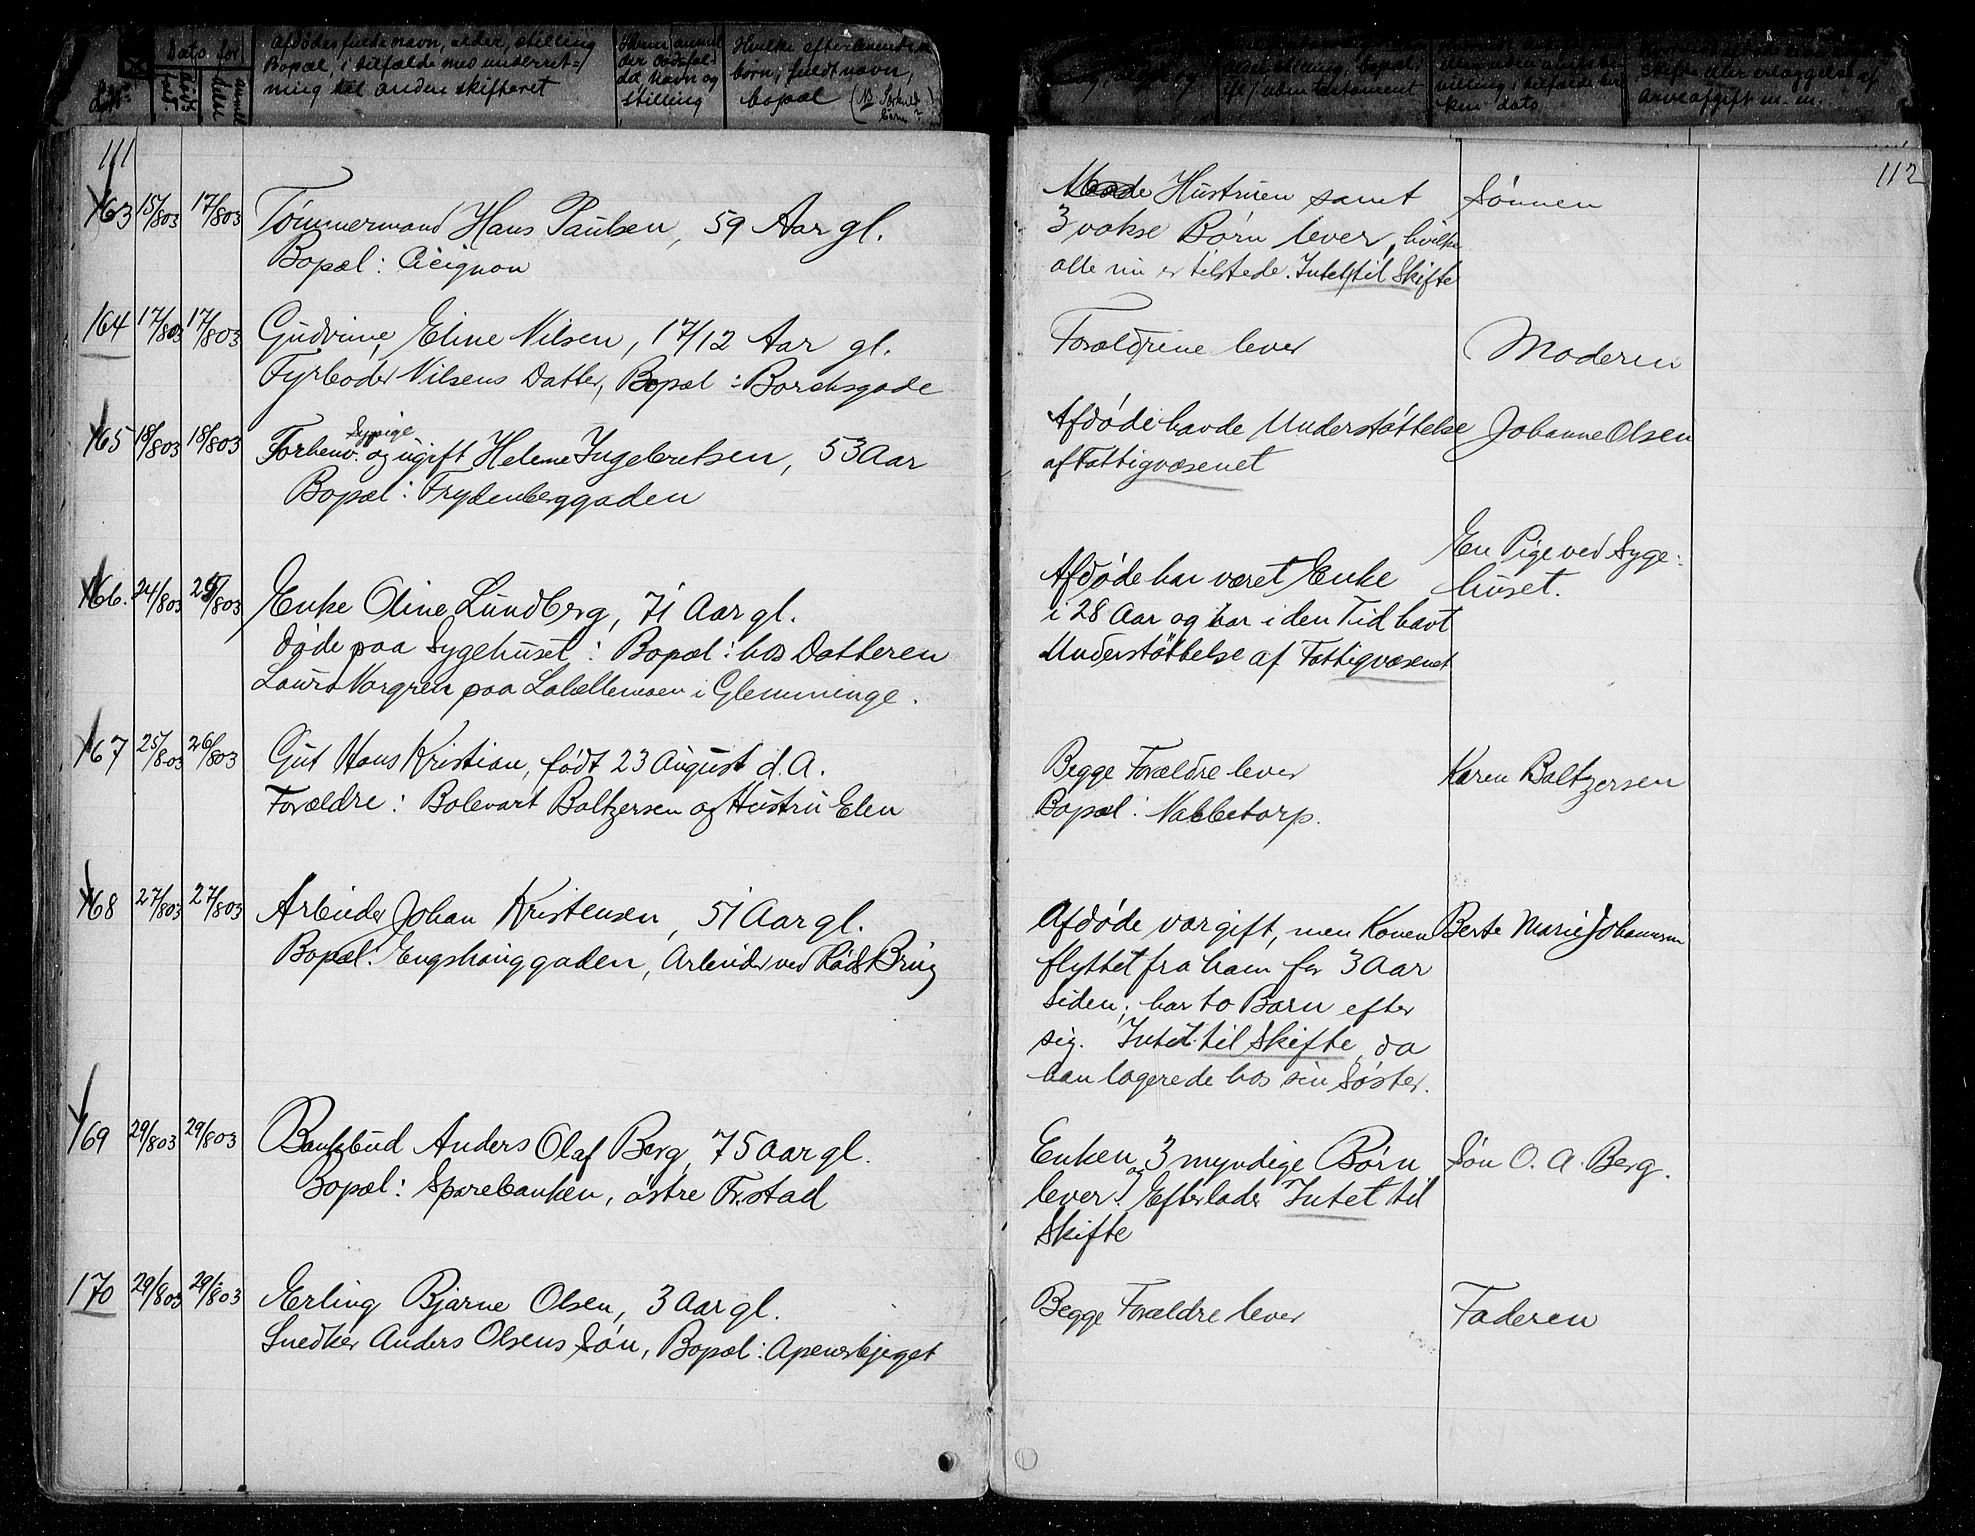 Dato for
Afdødes fulde navn, alder, stilling
Bopæl, i tilfælde med underret-
ning til anden skifteret
der dødsfal-
det, Navn og
stilling
Hvilke efterlevende
børn, fuldt navn,
bopæl
Skifte eller erlæggelse af
Arveafgift m. m.
111
163 15/8 03 17/8 03 Tømmermand Hans Paulsen, 59 Aar gl.
Bopæl: Cicignon
164 17/8 03 17/8 03 Gudrune, Eline Nilsen, 1 7/12 Aar gl.
Fyrbøder Nilsens Datter, Bopæl: Borchsgade
165 18/8 03 18/8 03 Forhenv. Sypige og ugift Helene Ingebretsen, 53 Aar
Bopæl: Frydenberggaden
166. 24/8 03 25/8 03 Enke Oline Lundberg, 71 Aar gl.
Døde paa Sygehuset: Bopæl: hos Datteren
Laura Norgren paa Labellemoen i Glemminge.
167 25/8 03 26/8 03 Gut Hans Kristian, født 23 August d.A.
Forældre: Bolevart Baltzersen og Hustru Elen
168 27/8 03 27/8 03 Arbeider Johan Kristensen, 51 Aar gl.
Bopæl: Engshauggaden, Arbeider ved Røds Brug
169 29/8 03 29/8 03 Bankbud Anders Olaf Berg, 75 Aar gl.
Bopæl: Sparebanken, østre Fr.stad
170 29/8 03 29/8 03 Erling Bjarne Olsen, 3 Aar gl.
Snedker Anders Olsens Søn, Bopæl: Apenesbjeget
112
Hustruen samt Sønnen
3 vokse Børn lever, hvilke
alle nu er tilstede. Intet til Skifte
Forældrene lever Moderen
Afdøde havde Understøttelse Johanne Olsen
af Fattigvæsenet
En Pige ved Syge-
huset.
Afdøde har været Enke
i 28 Aar og har i den Tid havt
Understøttelse af Fattigvæsenet
Begge Forældre lever Karen Baltzersen
Bopæl: Nabbetorp.
Afdøde var gift, men Konen Berte Marie Johannsen
flyttet fra ham for 3 Aar
siden; har to Børn efter
sig. Intet til Skifte, da
han logerede hos sin Søster.
Enken og 3 myndige Børn Søn O. A. Berg.
lever. Efterlader Intet til
Skifte
Begge Forældre lever Faderen